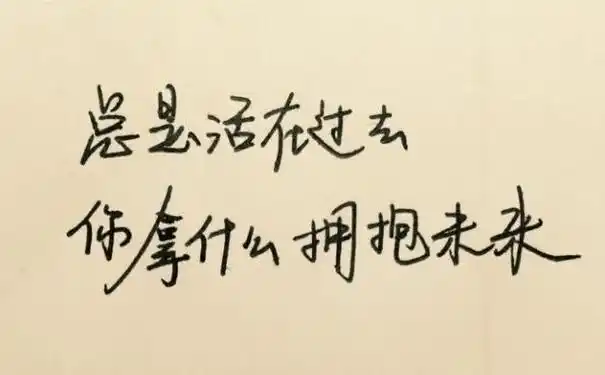 总是活在过去
你拿什么拥抱未来